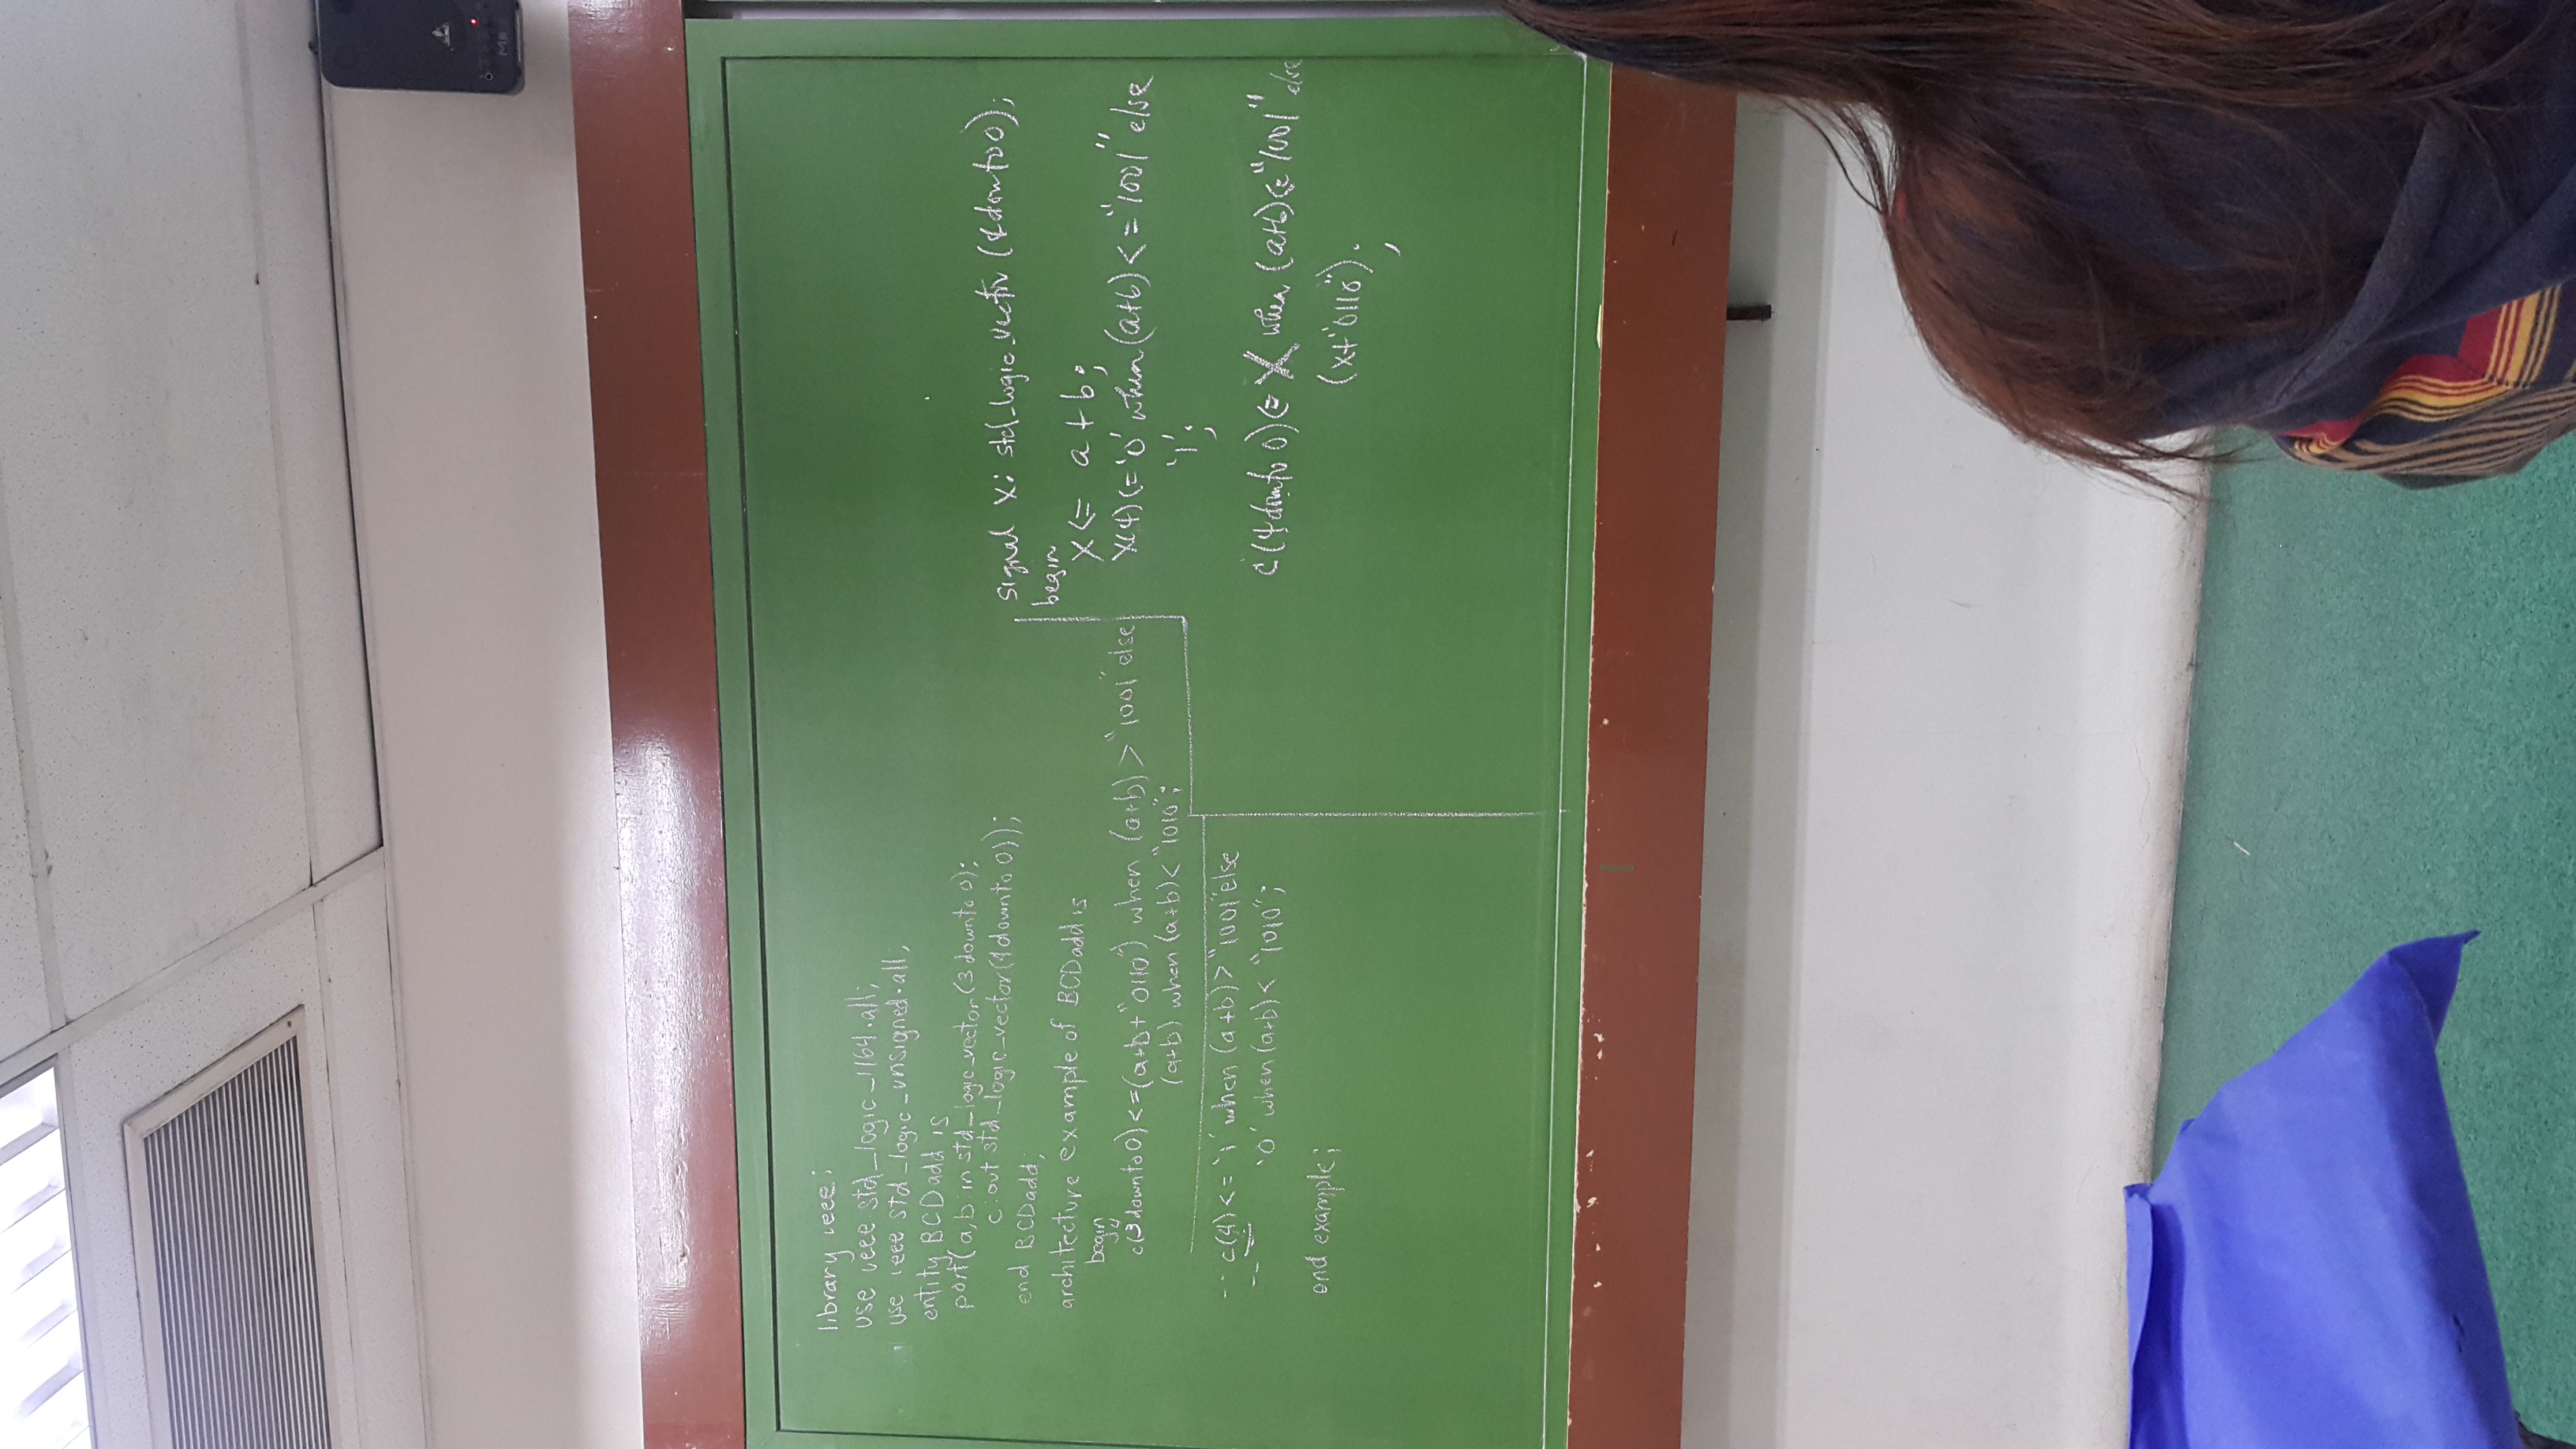 library ieee;
use ieee.std_logic_1164.all;
use ieee std_logic_unsigned.all;
entity BCDadd is
port(a,b: in std_logic_vector(3 downto 0);
c:out std_logic_vector(4 downto 0));
end BCDadd;
architecture example of BCDadd is
begin
c(3 downto 0)<=(a+b+"0110") when (a+b)>"1001" else
(a+b) when (a+b)<"1010";
-- c(4)<= '1' when (a+b)>"1001" else
-- '0' when (a+b)< "1010";
end example;
signal X: std_logic_vector (4 downto 0);
begin
X <= a+b;
X(4)<='0' when (a+b)<="1001" else
'1';
c(4 downto 0)<= X when (a+b)<="1001" else
(x+"0110");